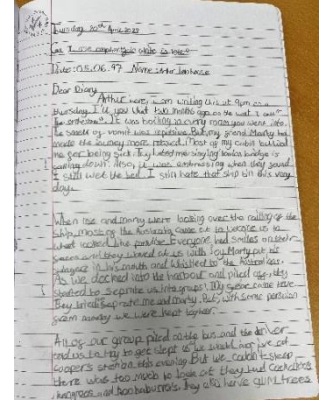 Thursday 20th April 2023
Date: 05.06.97 Name: Arthur
Dear Diary,
Arthur here, I am writing this at 9pm on a
thursday. I'll tell you that two months ago on the wait I was
It was boring in every room you went into.
the smell of vomit was repulsive. But, my friend Marty had
made the journey more relaxed. Most of my cabin bullied
me for being sick. They hated me singing london bridge is
falling down. Also, it was embarrassing when they found
I still wet the bed. I still hate that ship to this very
day.
When me and marty were looking over the railing of the
ship, most of the Australians came out to welcome us to
what looked like paradise. Everyone had smiles on their
faces and they waved at us with joy. Marty put his
fingers in his mouth and whistled to the Australians.
As we docked into the harbour and piled out, they
started to separate us into groups. My
they tried keep me and marty. But, with some persuasion
we were kept together.
All of our group piled on the bus and the driver
told us to try to get slept as we would not arrive at
cooper's station this evening. But we couldn't sleep
there was too much to look at they had cockatoos
kangaroos and kookaburras. they also have gum trees